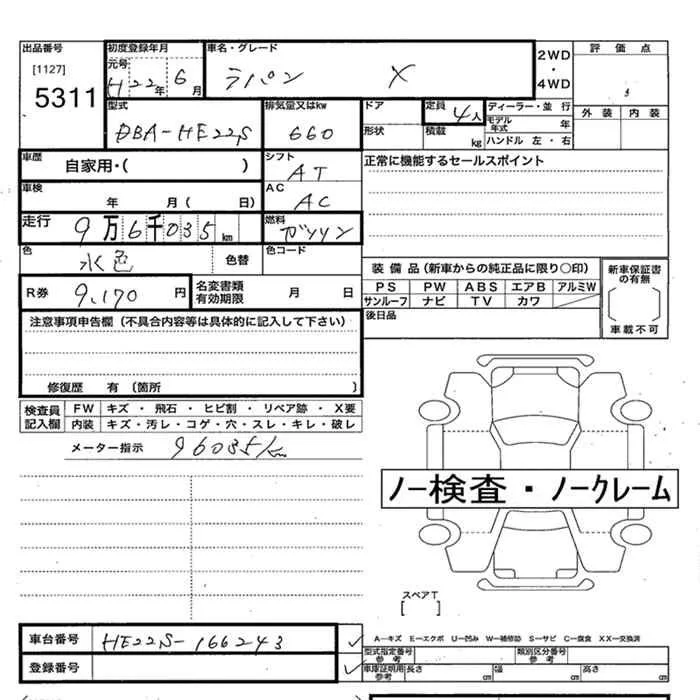 出品番号 初度登録年月 車名・グレード 2WD・4WD 評価点
[1127] 元号
5311 H22年 6月 ラパン X
型式 排気量又はkw ドア 定員 4人 ディーラー・並行 外装 内装
DBA-HE22S 660 形状 積載 kg モデル年式 年
ハンドル 左・右
車歴 自家用・( ) シフト AT 正常に機能するセールスポイント
車検 年 月( 日) AC AC
走行 9万6千035km 燃料 ガソリン
色 水色 色替 色コード
装備品(新車からの純正品に限り○印) 新車保証書の有無
R券 9,170円 名変書類有効期限 月 日 PS PW ABS エアB アルミW
サンルーフ ナビ TV カワ
注意事項申告欄(不具合内容等は具体的に記入して下さい) 後日品 車載不可
修復歴 有(箇所 )
検査員記入欄 FW キズ・飛石・ヒビ割・リペア跡・X要
内装 キズ・汚レ・コゲ・穴・スレ・キレ・破レ
メーター指示 96035km
ノー検査・ノークレーム
スペアT
[ ]
車台番号 HE22S-166243 ✓ A－キズ E－エクボ U－凹み W－補修跡 S－サビ C－腐食 XX－交換済
型式指定番号 参考 類別区分番号 参考
登録番号 ✓ 車庫証明用参考 長さ cm 幅 cm 高さ cm